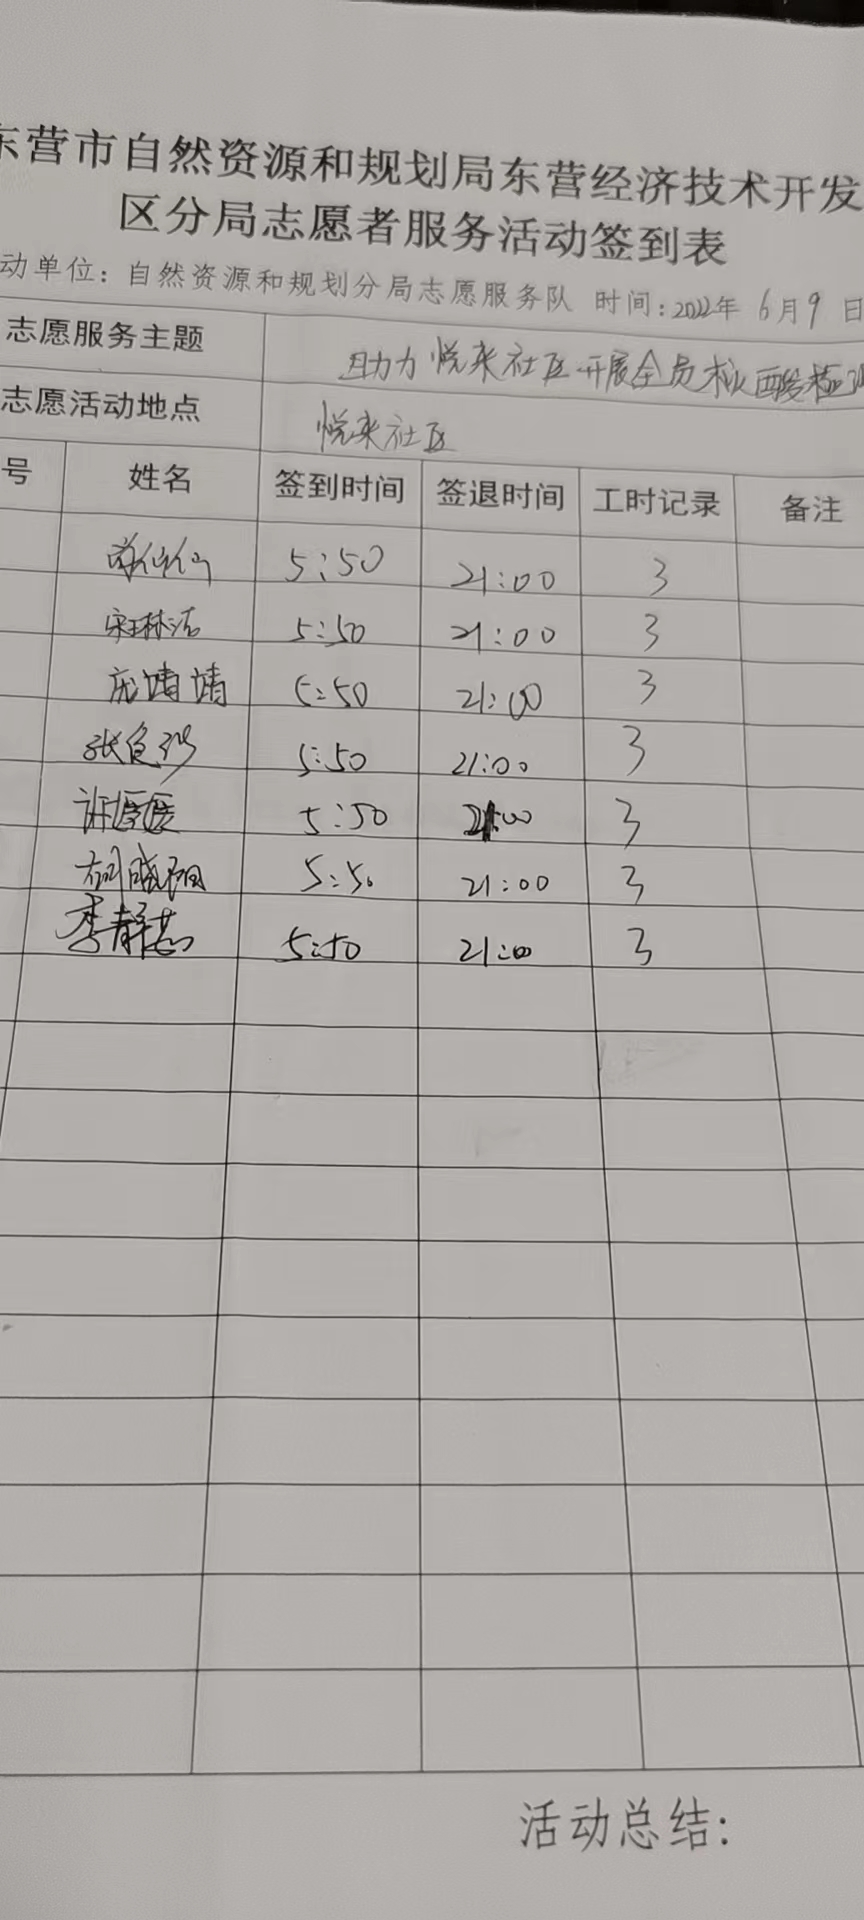 东营市自然资源和规划局东营经济技术开发
区分局志愿者服务活动签到表
动单位：自然资源和规划分局志愿服务队 时间：2022年 6月9日
志愿服务主题 助力悦来社区开展全员核酸检测
志愿活动地点 悦来社区
号 姓名 签到时间 签退时间 工时记录 备注
5:50 21:00 3
宋琳洁 5:50 21:00 3
庞靖靖 5:50 21:00 3
5:50 21:00 3
许媛媛 5:50 21:00 3
胡晓阳 5:50 21:00 3
李静茹 5:50 21:00 3
活动总结：